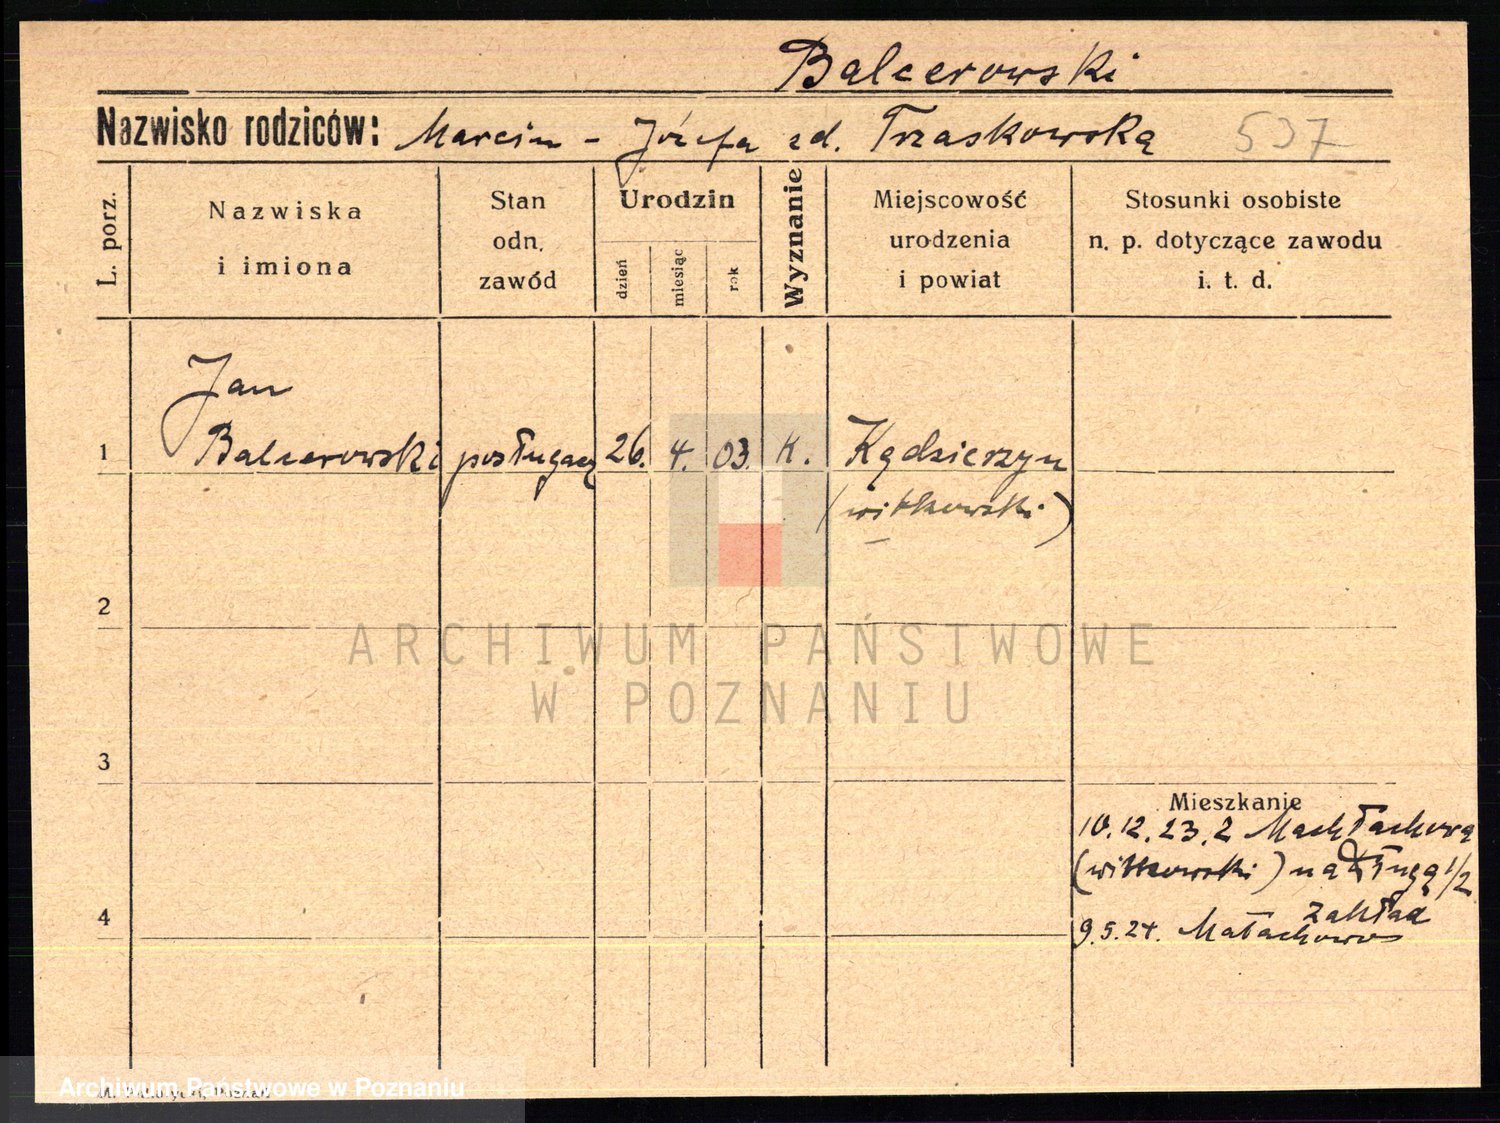 Balcerowski
Nazwisko rodziców: Marcin - Józefa zd. Trzaskowską 537
L. porz.
Nazwiska
i imiona
Stan
odn.
zawód
Urodzin
dzień
miesiąc
rok
Wyznanie
Miejscowość
urodzenia
i powiat
Stosunki osobiste
n. p. dotyczące zawodu
i. t. d.
Jan
1 Balcerowski posługacz 26. 4. 03. K. Kędzierzyn
(witkowski)
2
ARCHIWUM PAŃSTWOWE
W POZNANIU
3
Mieszkanie
10.12.23. z
(witkowski) na Długą 1/2
zakład
4 9.5.24. Małachowo
Archiwum Państwowe w Poznaniu